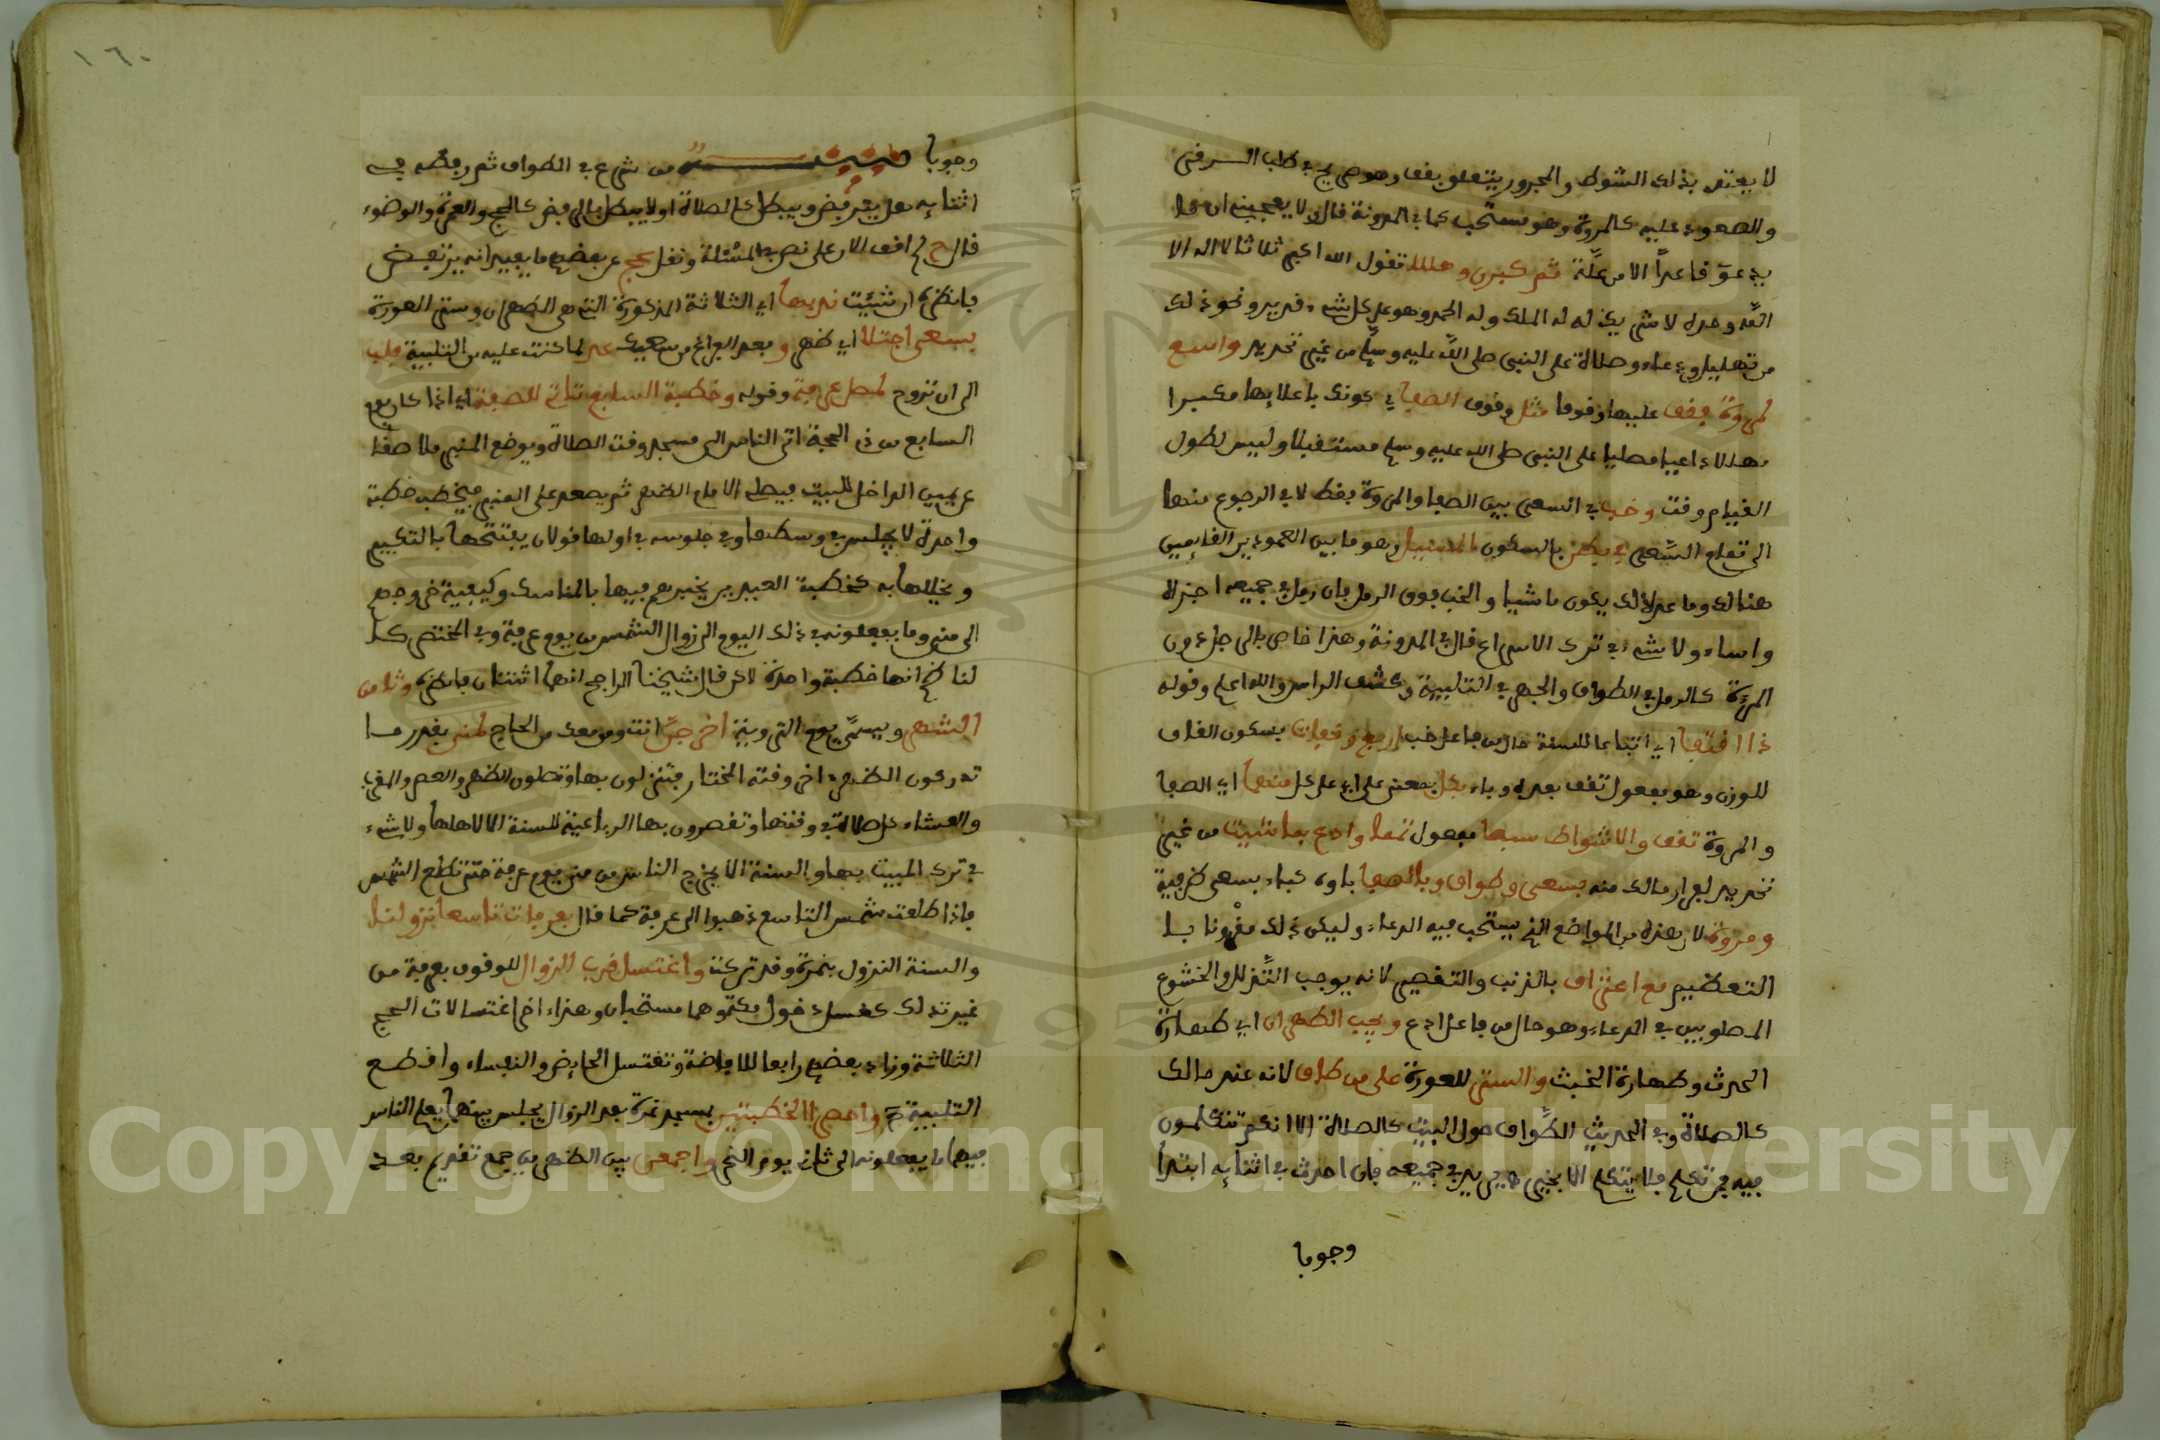 لا يعتد بذلك الشوط والمجرور يتعلق بقف وهو صريح في طلب الرقي
والصعود عليه كالمروة وهو مستحب كما في المدونة قال ولا يعجبني ان
يدعو قاعدا الا من علة ثم كبرن وهللا تقول الله اكبر ثلاثا لا اله الا
الله وحده لا شريك له له الملك وله الحمد وهو على كل شيء قدير ونحو ذلك
من تهليل ودعاء وصلاة على النبي صلى الله عليه وسلم من غير تحديد واسع
لمروة فقف عليها وقوفا مثل وقوف الصفا في كونك باعلاها مكبرا
مهللا داعيا مصليا على النبي صلى الله عليه وسلم مستقبلا وليس لطول
القيام وقت وخب في السعي بين الصفا والمروة فقط لا في الرجوع منها
الى تمام السعي في بطن بالسكون المسيل وهو ما بين العمودين القائمين
هنالك وما عدا ذلك يكون ماشيا والخب فوق الرمل فان رمل في جميعه اجزاه
واساء ولا شيء في ترك الاسراع قال في المدونة وهذا خاص بالرجل دون
المرءة كالرمل في الطواف والجهر في التلبية وكشف الراس والله اعلم وقوله
ذا اقتفا اي اتباعا للسنة حال من فاعل خب اربع وقفات بسكون القاف
للوزن وهو مفعول تقف بعده وباء بكل بمعنى على اي على كل منهما اي الصفا
والمروة تقف والاشواط سبعا مفعول تمما وادع بما شئت من غير
تحديد لجواز مالك منه بسعي وطواف وبالصفا باؤه كباء بسعي ظرفية
ومروة لان هذه من المواضع التي يستحب فيه الدعاء وليكن ذلك مقرونا بـ
التعظيم مع اعتراف بالذنب والتقصير لانه يوجب التذلل والخشوع
المطلوبين في الدعاء وهو حال من فاعل ادع ويجب الطهران اي طهارة
الحدث وطهارة الخبث والستر للعورة على من طاف لانه عند مالك
كالصلاة وفي الحديث الطواف حول البيت كالصلاة الا انكم تتكلمون
فيه فمن تكلم فلا يتكلم الا بخير في جميعه فان احدث في اثنائه ابتدا
وجوبا
١٦٠
وجوبا من شرع في الطواف ثم رفضه في
اثنائه هل يعد رفض ويبطل كالصلاة او لا يبطل بالرفض كالحج والعمرة والوضوء
قال ح لم اقف الان على نص في المسئلة ونقل عج عن بعضهم ما يفيد انه يرتفض
فانظره ان شئت ندبها اي الثلاثة المذكورة التي هي الطهران وستر العورة
بسعي اجتلا اي ظهر وبعد الفراغ من سعيك عد لما كنت عليه من التلبية فلب
الى ان تروح لمصلى عرفة وقوله وخطبة السابع تاتي للصفة اي اذا كان يوم
السابع من ذي الحجة اتى الناس الى مسجد وقت الصلاة ويوضع المنبر ملاصقا
عن يمين الداخل للبيت فيصلي الامام الظهر ثم يصعد على المنبر فيخطب خطبة
واحدة لا يجلس في وسطها وفي جلوسه في اولها قولان يفتتحها بالتكبير
ويخللها به كخطبة العيدين يخبرهم فيها بالمناسك وكيفية خروجهم
الى منى وما يفعلونه في ذلك اليوم الى زوال الشمس من يوم عرفة وفي المختصر كما
لنا ظم انها خطبة واحدة لكن قال شيخنا الراجح انها اثنتان فانظره وثامن
الشهر ويسمى يوم التروية اخرجن انت ومن معك من الحاج لمنى بقدر ما
تدركون الظهر اخر وقته المختار فتنزلون بها وتصلون الظهر والعصر والمغرب
والعشاء كل صلاة في وقتها وتقصرون بها الرباعية للسنة الا لاهلها ولا شيء
في ترك المبيت بها والسنة الا يخرج الناس من منى يوم عرفة حتى تطلع الشمس
فاذا طلعت شمس التاسع ذهبوا الى عرفة كما قال بعرفات تاسعا نزولنا
والسنة النزول بنمرة وقد تركت واغتسل قرب الزوال للوقوف بعرفة من
غير تدلك كغسل دخول مكة وهما مستحبان وهذا اخر اغتسالات الحج
الثلاثة وزاد بعضهم رابعا للافاضة وتغتسل الحائض والنفساء واقطع
التلبية ثم واحضر الخطبتين بمسجد نمرة بعد الزوال يجلس بينهما يعلم الناس
فيهما ما يفعلونه الى ثاني يوم النحر واجمعن بين الظهرين جمع تقديم بعد
Copyright © King Saud University
1957